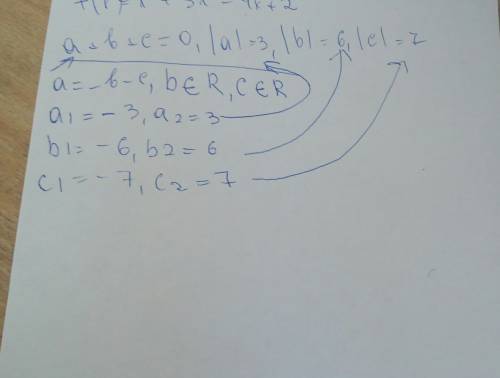 a + b + c = 0, |a| = 3, |b| = 6, |c| = 7
a = -b - c, b ∈ R, c ∈ R
a1 = -3, a2 = 3
b1 = -6, b2 = 6
c1 = -7, c2 = 7